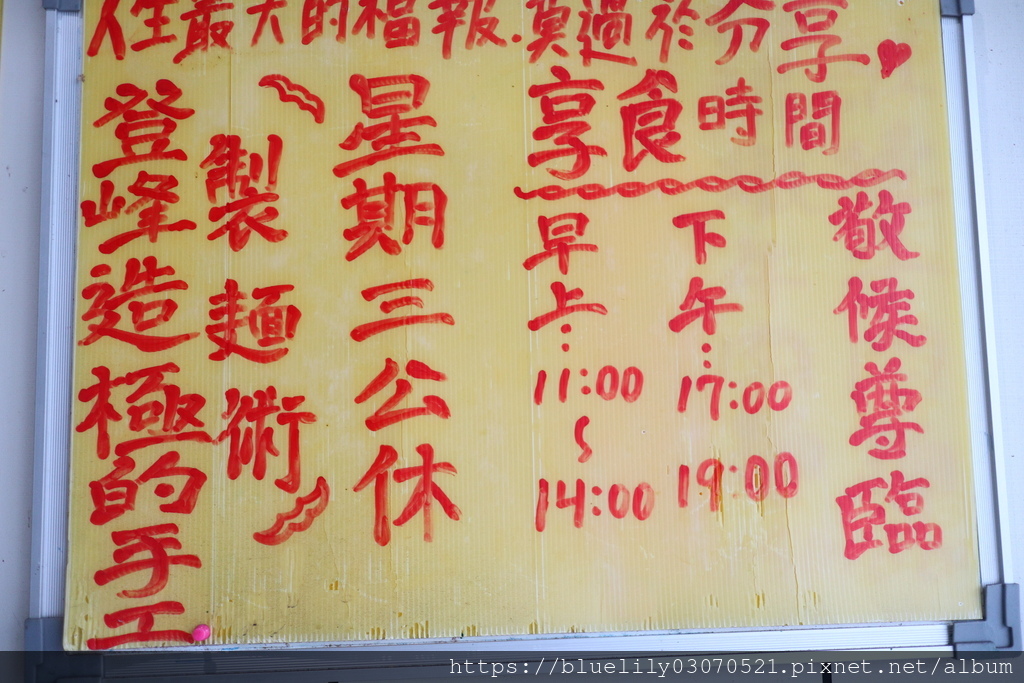 人生最大的福報.莫過於分享
享食時間
敬候尊臨
下午:17:00
19:00
早上:11:00
~
14:00
星期三公休
製麵術
登峰造極的手工
https://bluelily03070521.pixnet.net/album